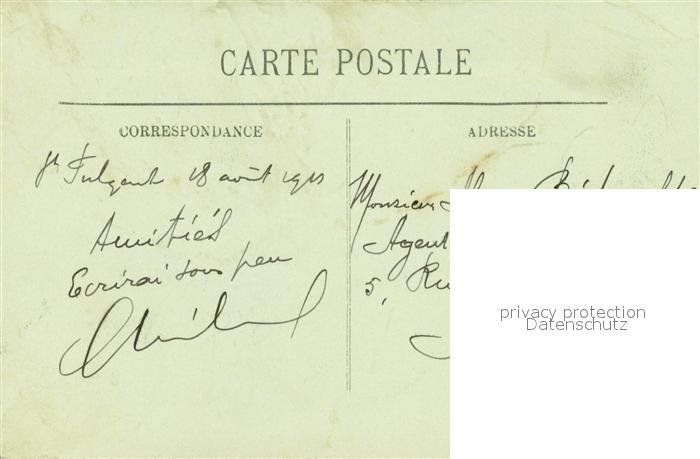 CARTE POSTALE
CORRESPONDANCE
St Fulgent 18 août 1911
Amitiés
Ecrirai sous peu
ADRESSE
Monsieur
Agent
5, Ru
privacy protection
Datenschutz